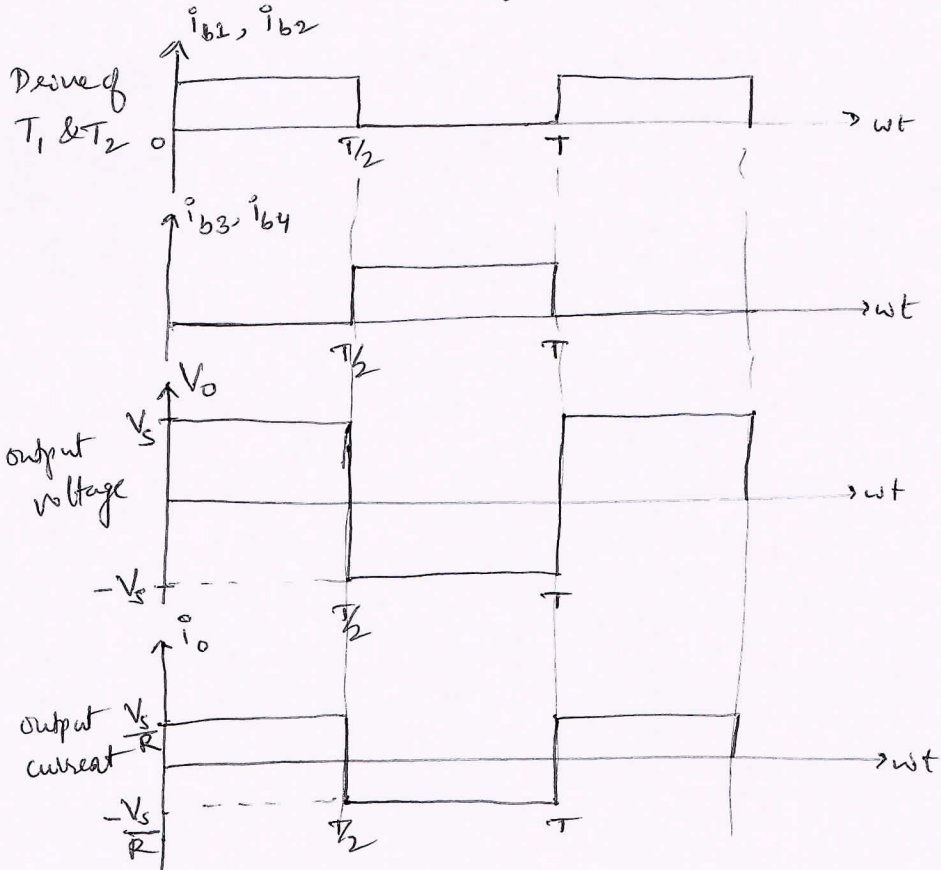 i_b1, i_b2
Drive of
T_1 & T_2
0
T/2
T
wt
i_b3, i_b4
T/2
T
wt
V_0
V_s
output
voltage
wt
-V_s
T/2
T
i_0
output V_s/R
current
wt
-V_s/R
T/2
T